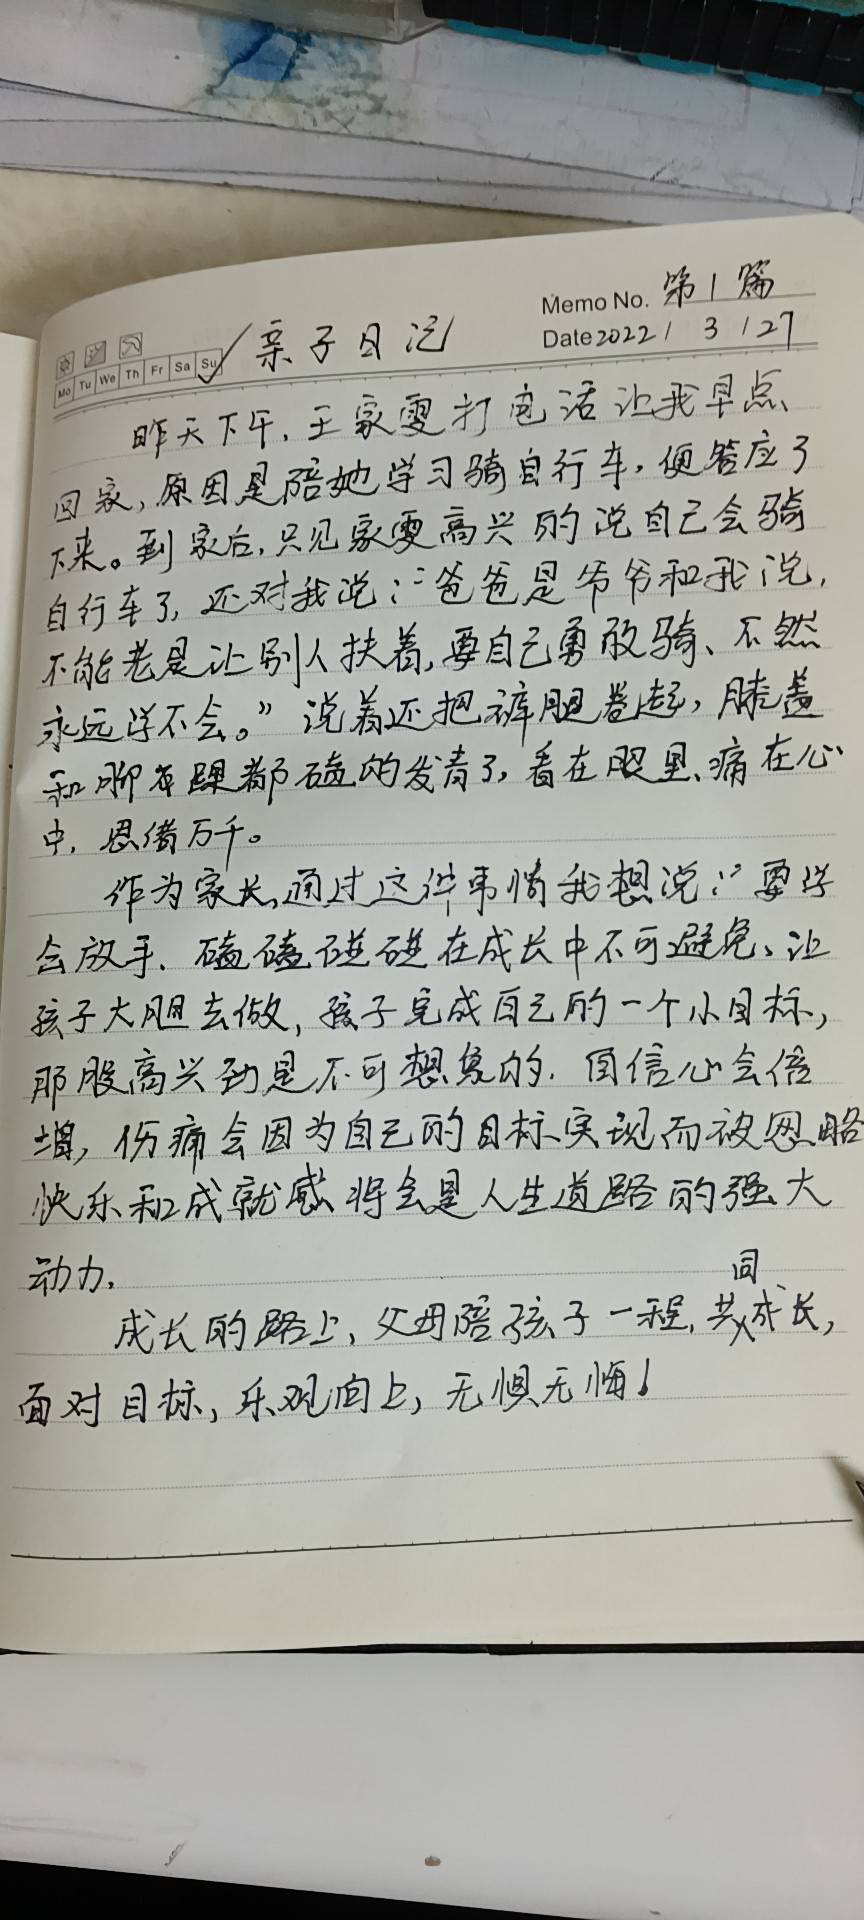 Memo No. 第1篇
Mo Tu We Th Fr Sa Su 亲子日记 Date 2022 / 3 / 27
昨天下午,王家雯打电话让我早点
回家,原因是陪她学习骑自行车,便答应了
下来。到家后,只见家雯高兴的说自己会骑
自行车了,还对我说:“爸爸是爷爷和我说,
不能老是让别人扶着,要自己勇敢骑、不然
永远学不会。”说着还把裤腿卷起,膝盖
和脚踝都磕的发青了,看在眼里、痛在心
中,思绪万千。
作为家长,通过这件事情我想说:“要学
会放手、磕磕碰碰在成长中不可避免、让
孩子大胆去做,孩子完成自己的一个小目标,
那股高兴劲是不可想象的.自信心会倍
增,伤痛会因为自己的目标实现而被忽略
快乐和成就感将会是人生道路的强大
动力.
成长的路上,父母陪孩子一程,共同成长,
面对目标,乐观向上,无惧无悔!